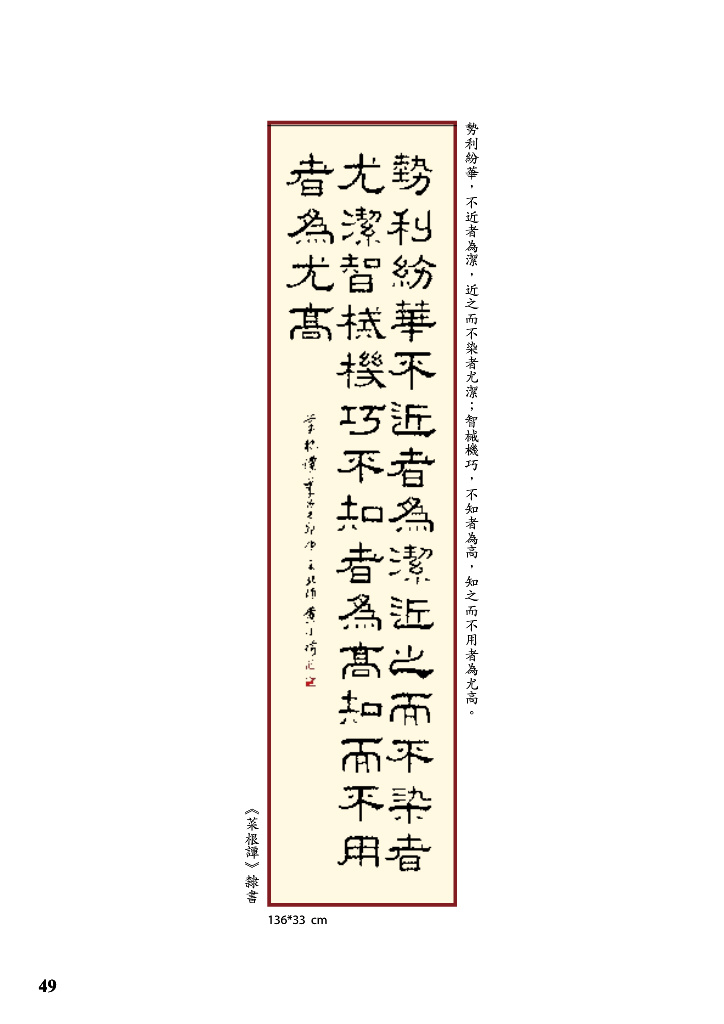 勢利紛華，不近者為潔，近之而不染者尤潔；智械機巧，不知者為高，知之而不用者為尤高。
勢利紛華不近者為潔近之而不染者
尤潔智械機巧不知者為髙知而不用
者為尤髙
菜根譚
《菜根譚》隸書
136*33 cm
49